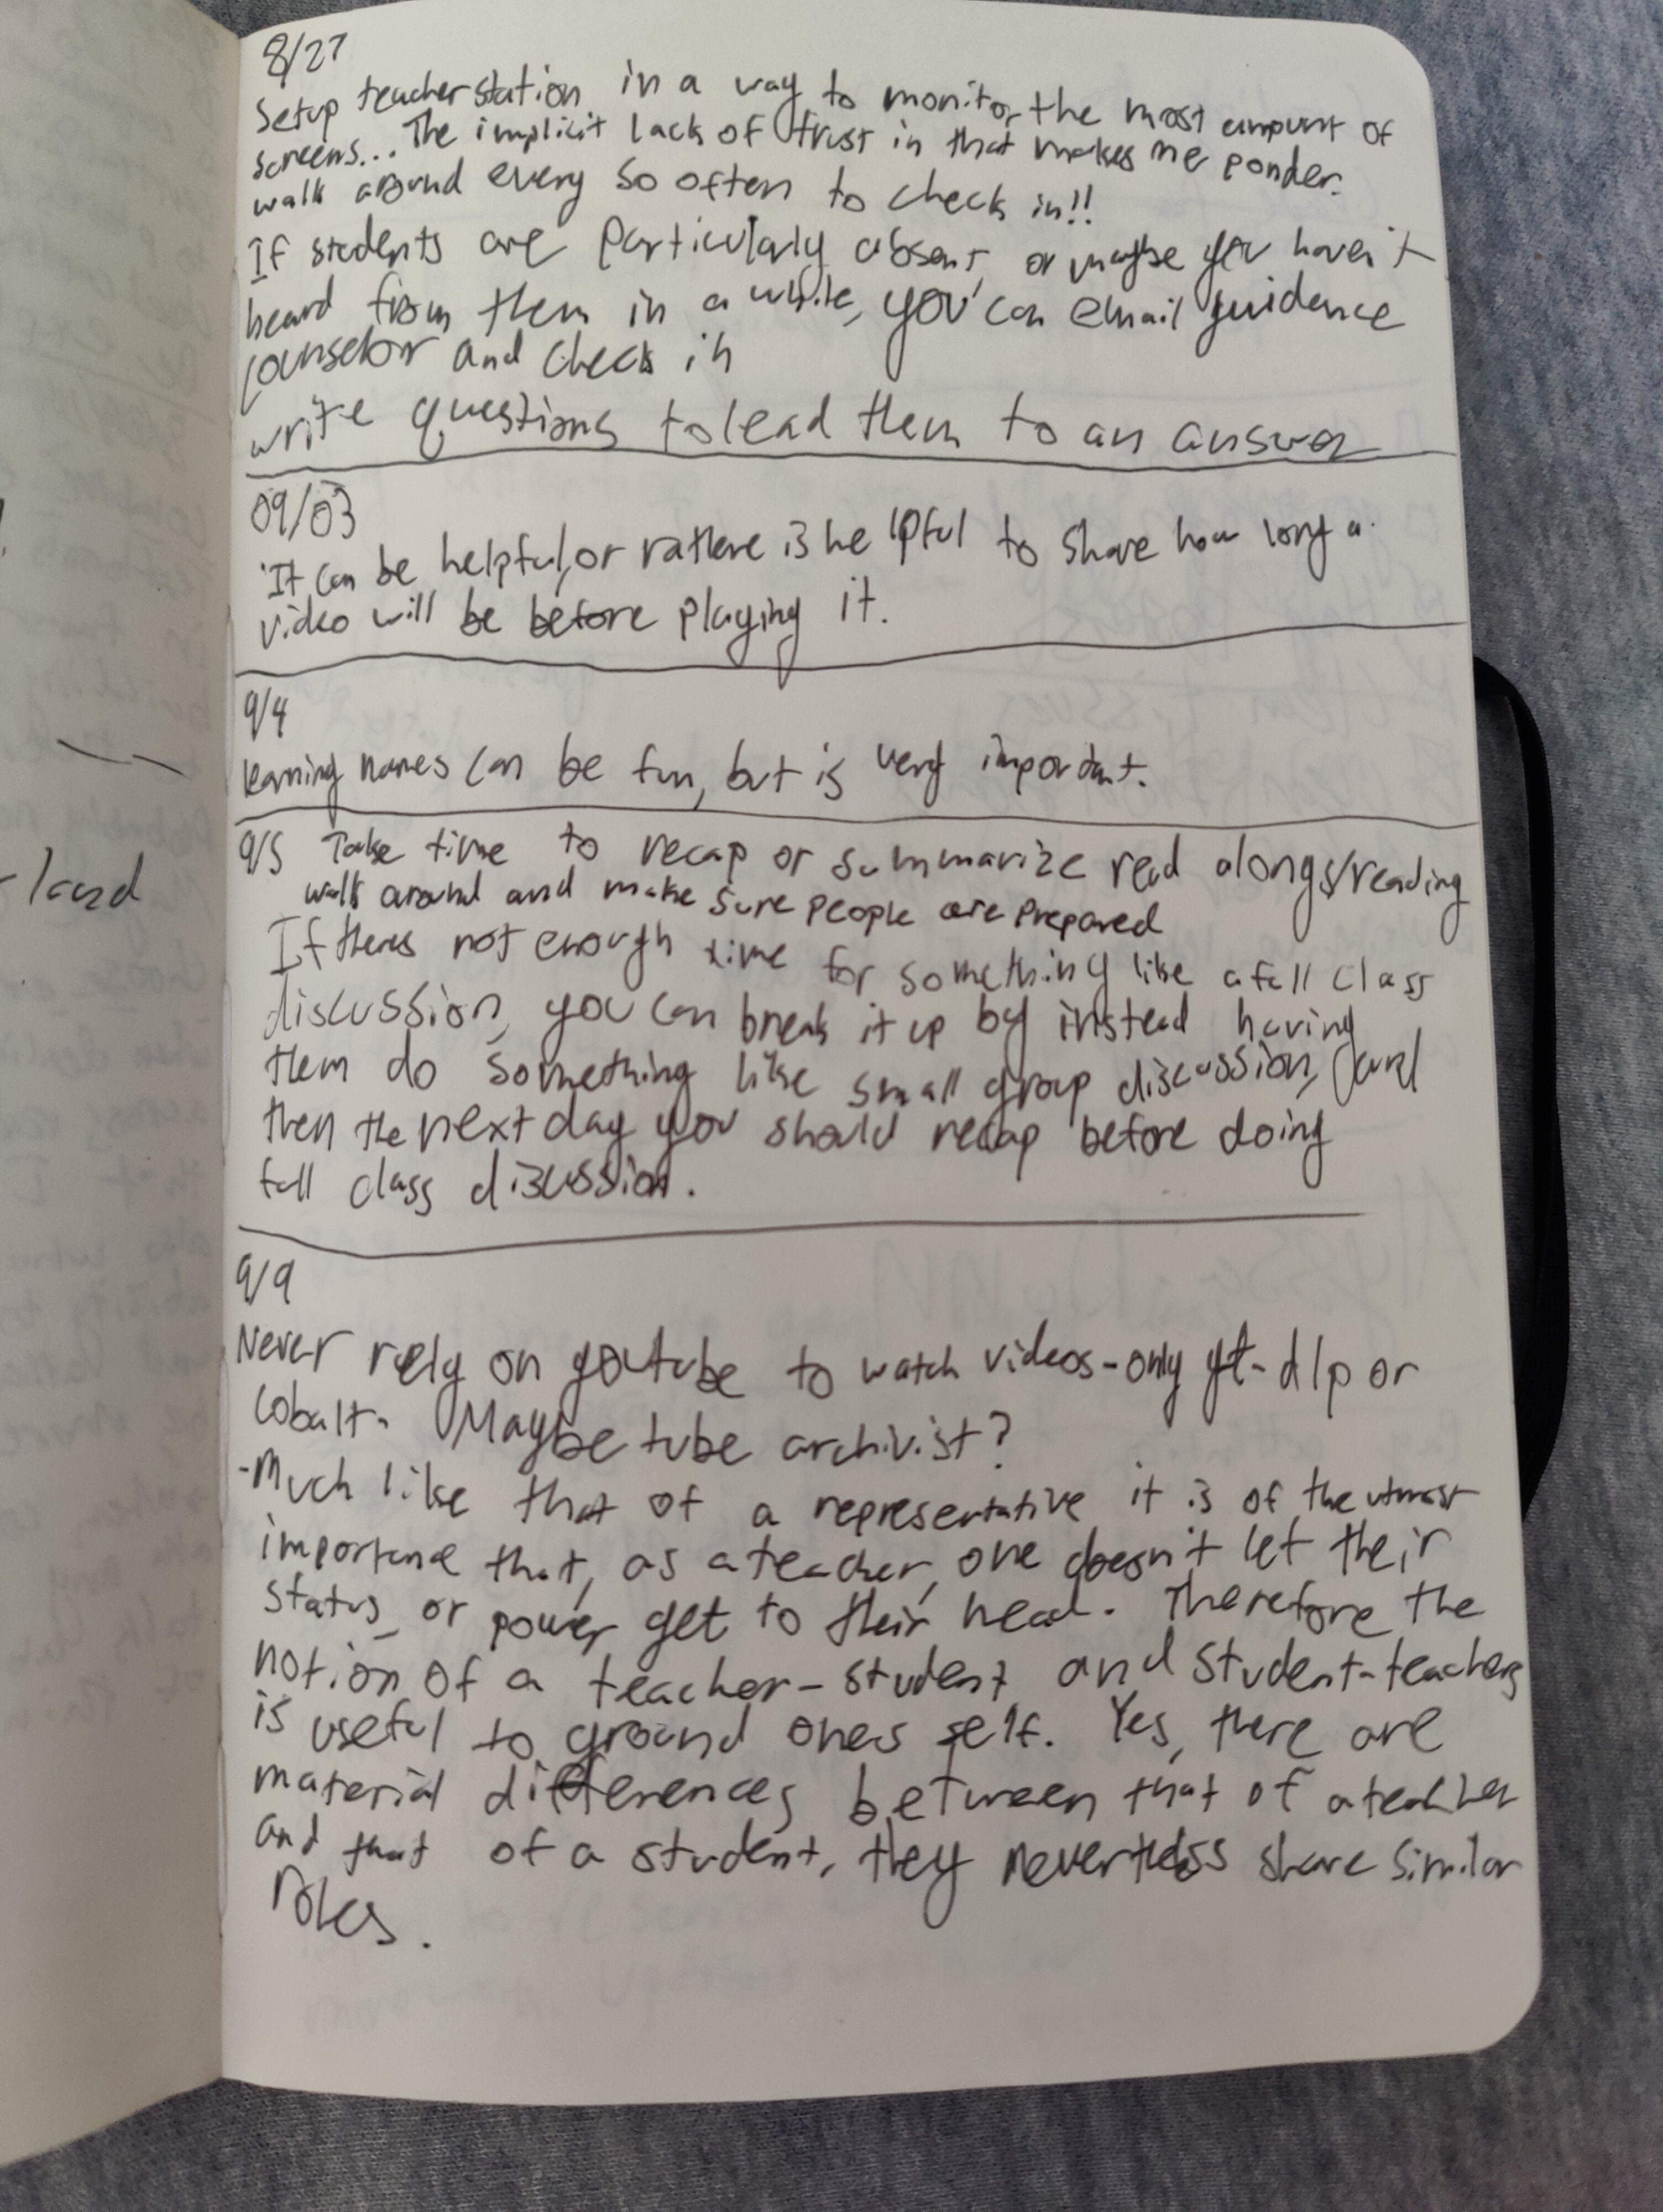 8/27
Setup teacher station in a way to monitor the most amount of
screens... The implicit lack of trust in that makes me ponder.
walk around every so often to check in!!
If students are particularly absent, or maybe you haven't
heard from them in a while, you can email guidence
counselor and check in
write questions to lead them to an answer
09/03
It can be helpful, or rathere is helpful to share how long a
video will be before playing it.
9/4
learning names can be fun, but is very important.
9/5 Take time to recap or summarize read alongs/reading
walk around and make sure people are prepared
If theres not enough time for something like a full class
discussion, you can break it up by instead having
them do something like small group discussion, and
then the next day you should recap before doing
full class discussion.
9/9
Never rely on youtube to watch videos - only yt-dlp or
cobalt. Maybe tube archivist?
- Much like that of a representative it is of the utmost
importance that, as a teacher, one doesn't let their
status or power get to their head. Therefore the
notion of a teacher-student and student-teachers
is useful to ground ones self. Yes, there are
material differences between that of a teacher
and that of a student, they nevertheless share similar
roles.
land